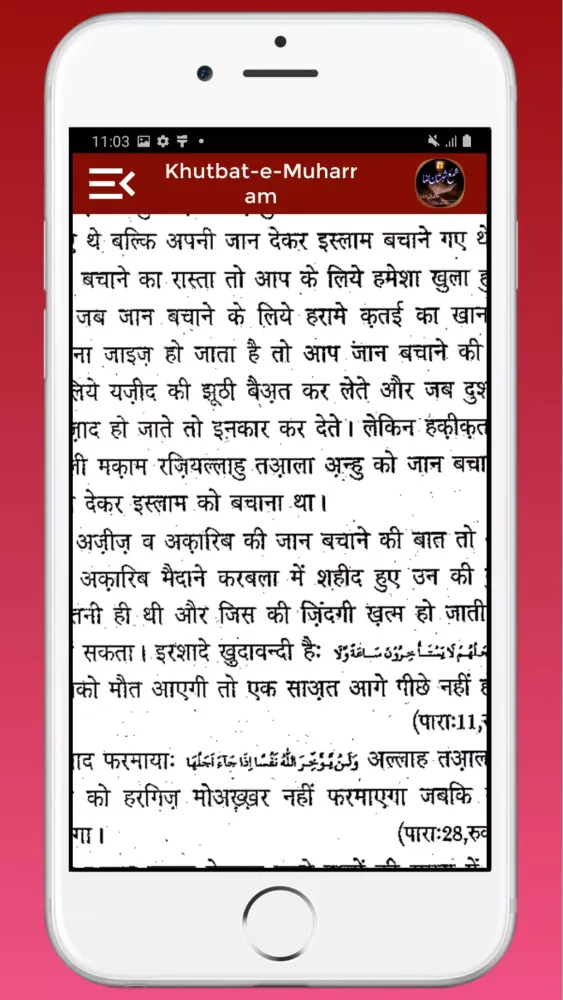 11:03
Khutbat-e-Muharr
am
थे बल्कि अपनी जान देकर इस्लाम बचाने गए थे
बचाने का रास्ता तो आप के लिये हमेशा खुला
जब जान बचाने के लिये हरामे क़तई का खान
ना जाइज़ हो जाता है तो आप जान बचाने की
लिये यज़ीद की झूठी बैअ़त कर लेते और जब दुश
ज़ाद हो जाते तो इनकार कर देते। लेकिन हक़ीक़त
ली मक़ाम रज़ियल्लाहु तआ़ला अ़न्हु को जान बचा
देकर इस्लाम को बचाना था।
अज़ीज़ व अक़ारिब की जान बचाने की बात तो
अक़ारिब मैदाने करबला में शहीद हुए उन की
तनी ही थी और जिस की ज़िंदगी ख़त्म हो जाती
सकता। इरशादे ख़ुदावन्दी हैः لَا يَسْتَأْخِرُوْنَ سَاعَةً وَّلَا
को मौत आएगी तो एक साअ़त आगे पीछे नहीं
(पाराः11,
ाद फरमायाः وَلَنْ يُّؤَخِّرَ اللهُ نَفْسًا اِذَا جَاءَ اَجَلُهَا अल्लाह तआ़ल
को हरगिज़ मोअख़्ख़र नहीं फरमाएगा जबकि
गा। (पाराः28,रुक